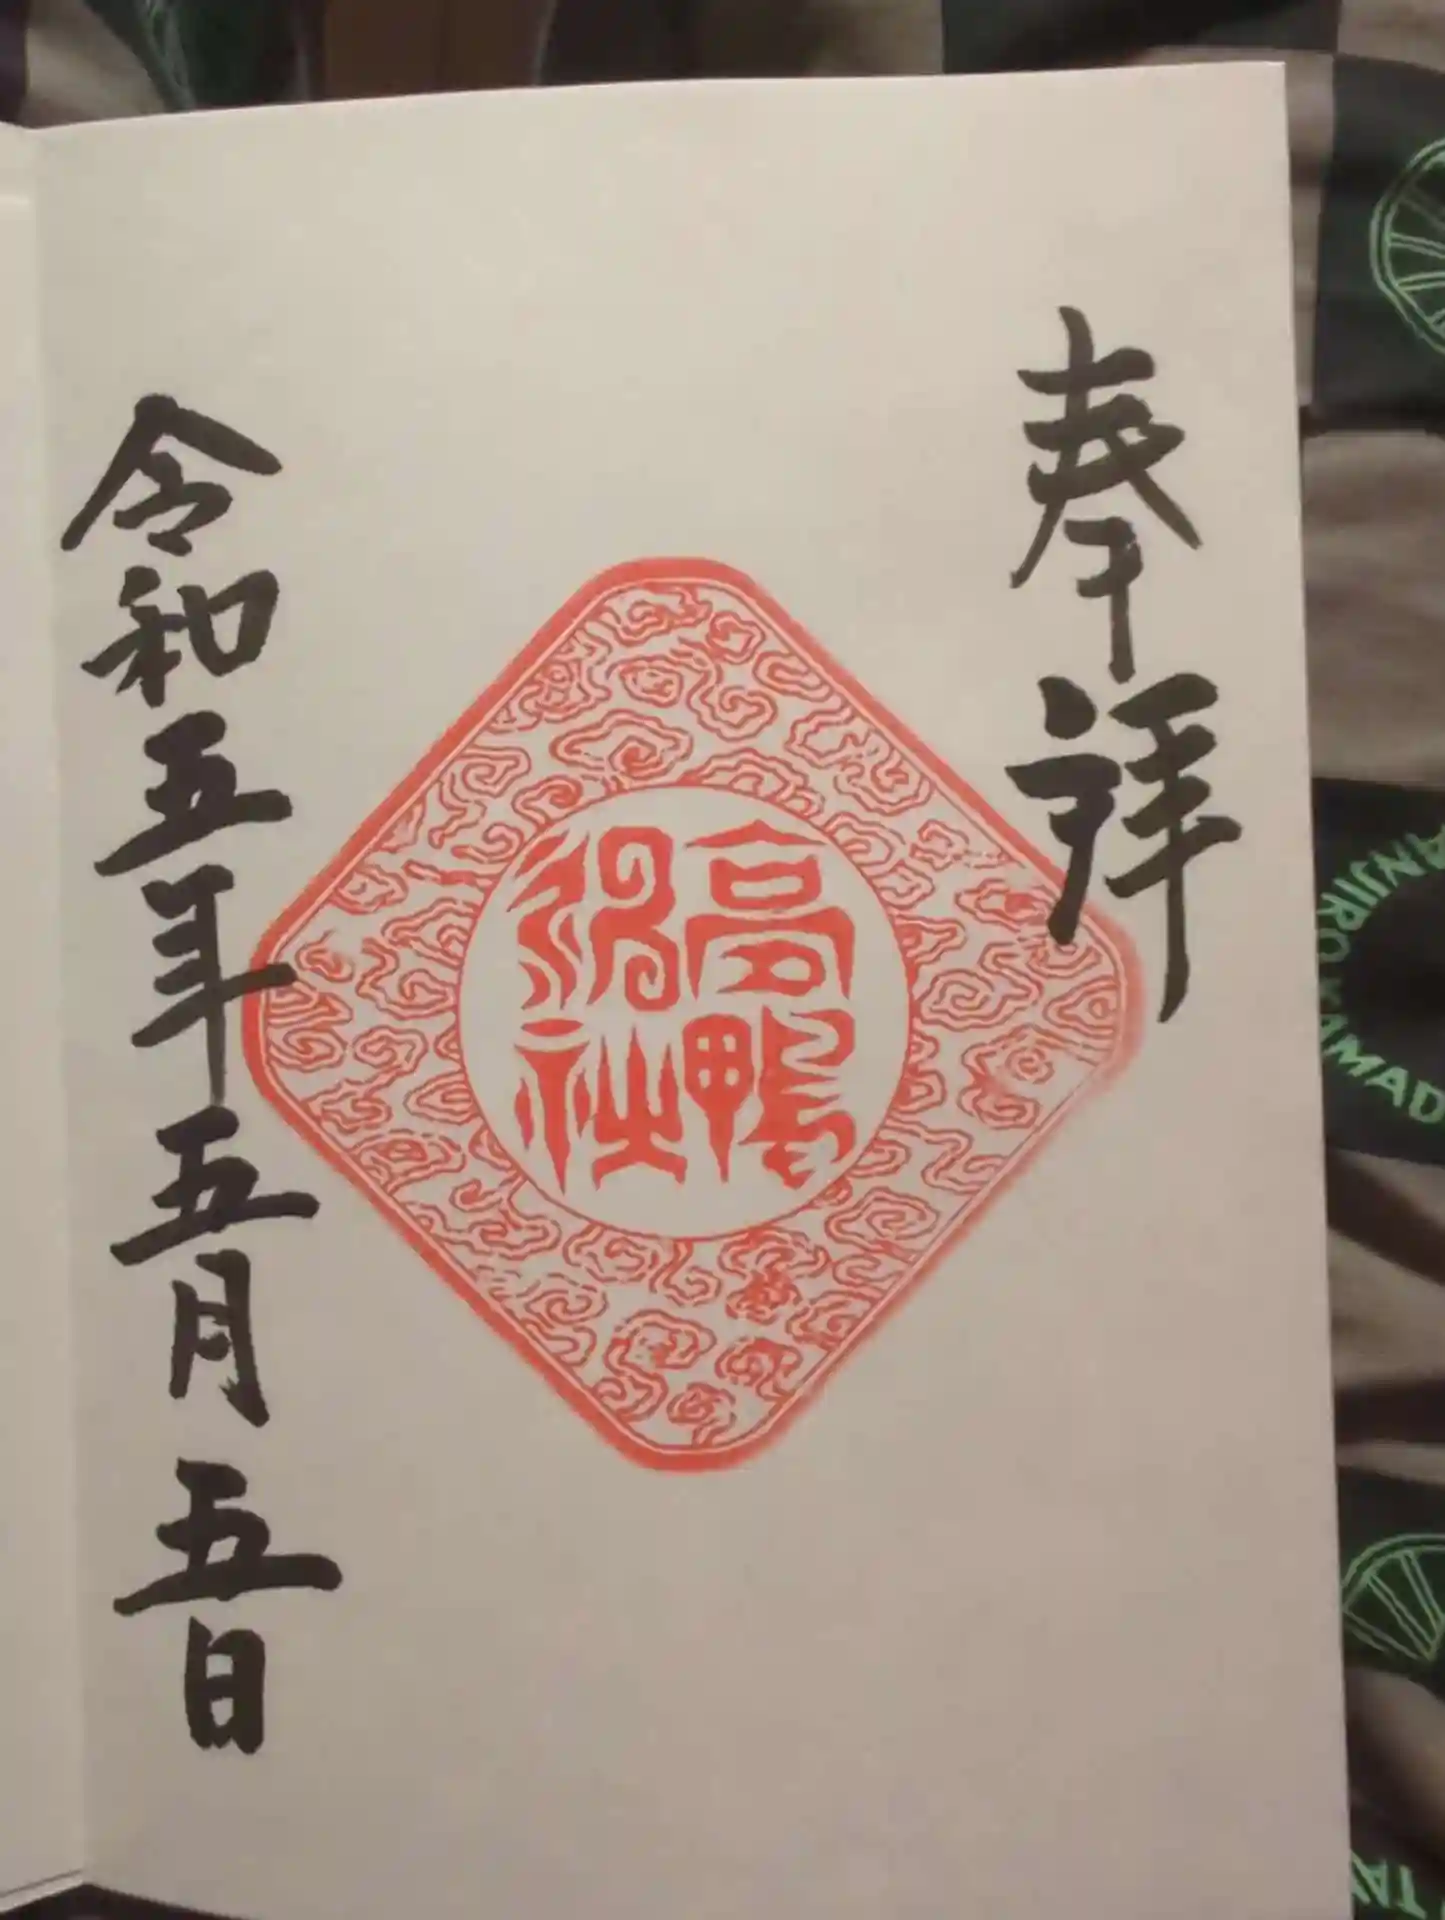 奉拝
高鴨
神社
令和五年五月五日
ANJIRO
AMAD
TA